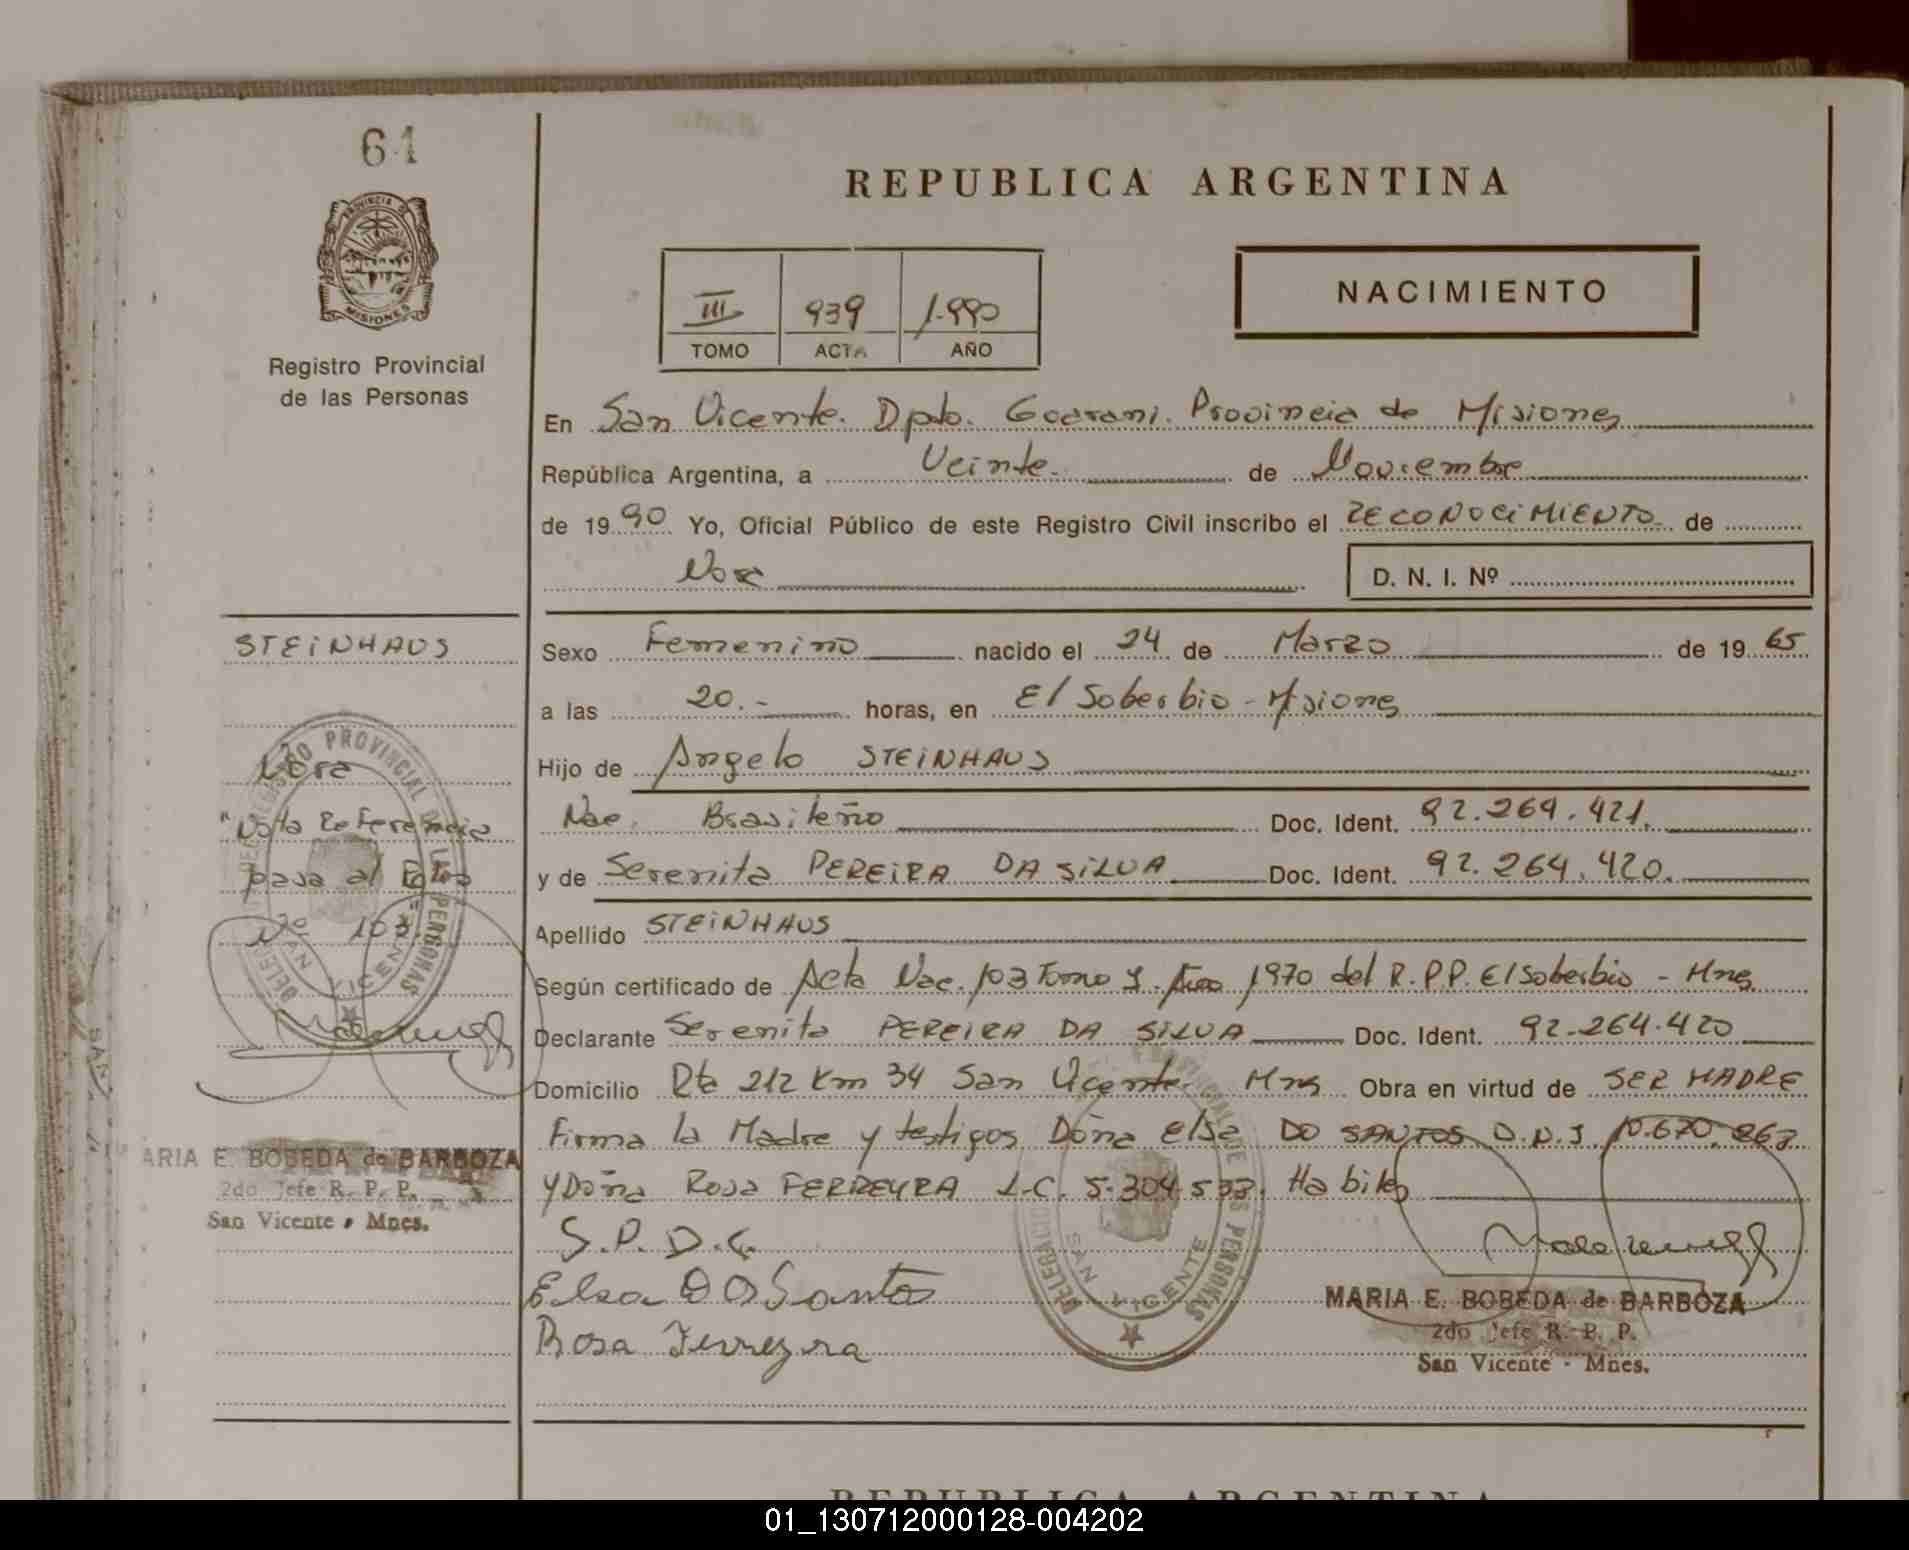 61
REPUBLICA ARGENTINA
PROVINCIA DE
MISIONES
Registro Provincial
de las Personas
III 939 1.990
TOMO ACTA AÑO
NACIMIENTO
En San Vicente. Dpto. Guarani. Provincia de Misiones
República Argentina, a Veinte. de Noviembre
de 1990 Yo, Oficial Público de este Registro Civil inscribo el RECONOCIMIENTO de
Nora D. N. I. Nº
STEINHAUS
Sexo Femenino nacido el 24 de Marzo de 1965
a las 20.- horas, en El Soberbio - Misiones
Nora
Hijo de Angelo STEINHAUS
"Nota Referencia
Nac. Brasileño Doc. Ident. 92.269.421.
pasa al
y de Serenita PEREIRA DA SILVA Doc. Ident. 92.264.420.
Nº 103
Apellido STEINHAUS
Según certificado de Acta Nac. 103 Tomo I. Año 1970 del R.P.P. El Soberbio - Mnes
Declarante Serenita PEREIRA DA SILVA Doc. Ident. 92.264.420
Domicilio Rta 212 Km 34 San Vicente. Mns Obra en virtud de SER MADRE
Firma la Madre y testigos Doña Elsa DO SANTOS D.N.I. 10.670.263
y Doña Rosa FERREYRA L.C. 5.304.533. Habiles
ARIA E. BOBEDA de BARBOZA
2do Jefe R. P. P.
San Vicente • Mnes.
S.P.D.S.
Elsa DO Santos
Rosa Ferreyra
DELEGACION SAN VICENTE
MARIA E. BOBEDA de BARBOZA
2do Jefe R. P. P.
San Vicente - Mnes.
REPUBLICA ARGENTINA
01_130712000128-004202